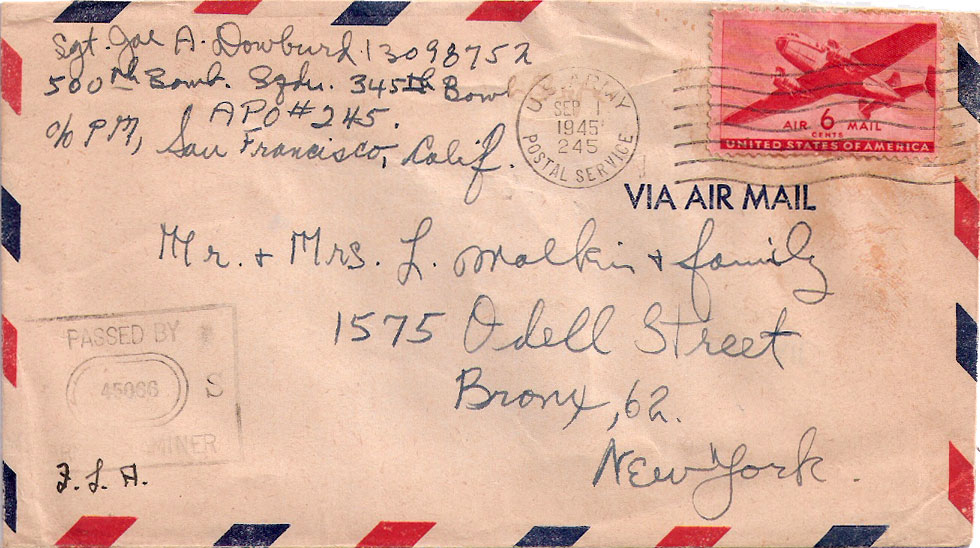 Sgt. Joe A. Dowburd 13098752
500th Bomb. Sqdn. 345th Bomb
APO # 245.
c/o P.M., San Francisco, Calif.
U.S. ARMY
SEP 1
1945
245
POSTAL SERVICE
AIR 6 MAIL
CENTS
UNITED STATES OF AMERICA
VIA AIR MAIL
Mr. + Mrs. L. Malkin + family
1575 Odell Street
Bronx, 62.
New York.
PASSED BY
45066 S
EXAMINER